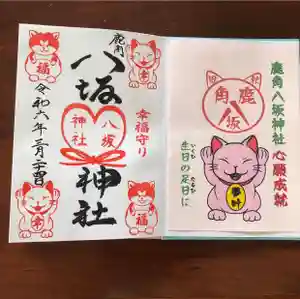 鹿角
八坂神社
八坂
神社
幸福守り
令和六年
福
福
鹿角
八坂
鹿角八坂神社
心願成就
生日の足日に
いくひ
たるひ